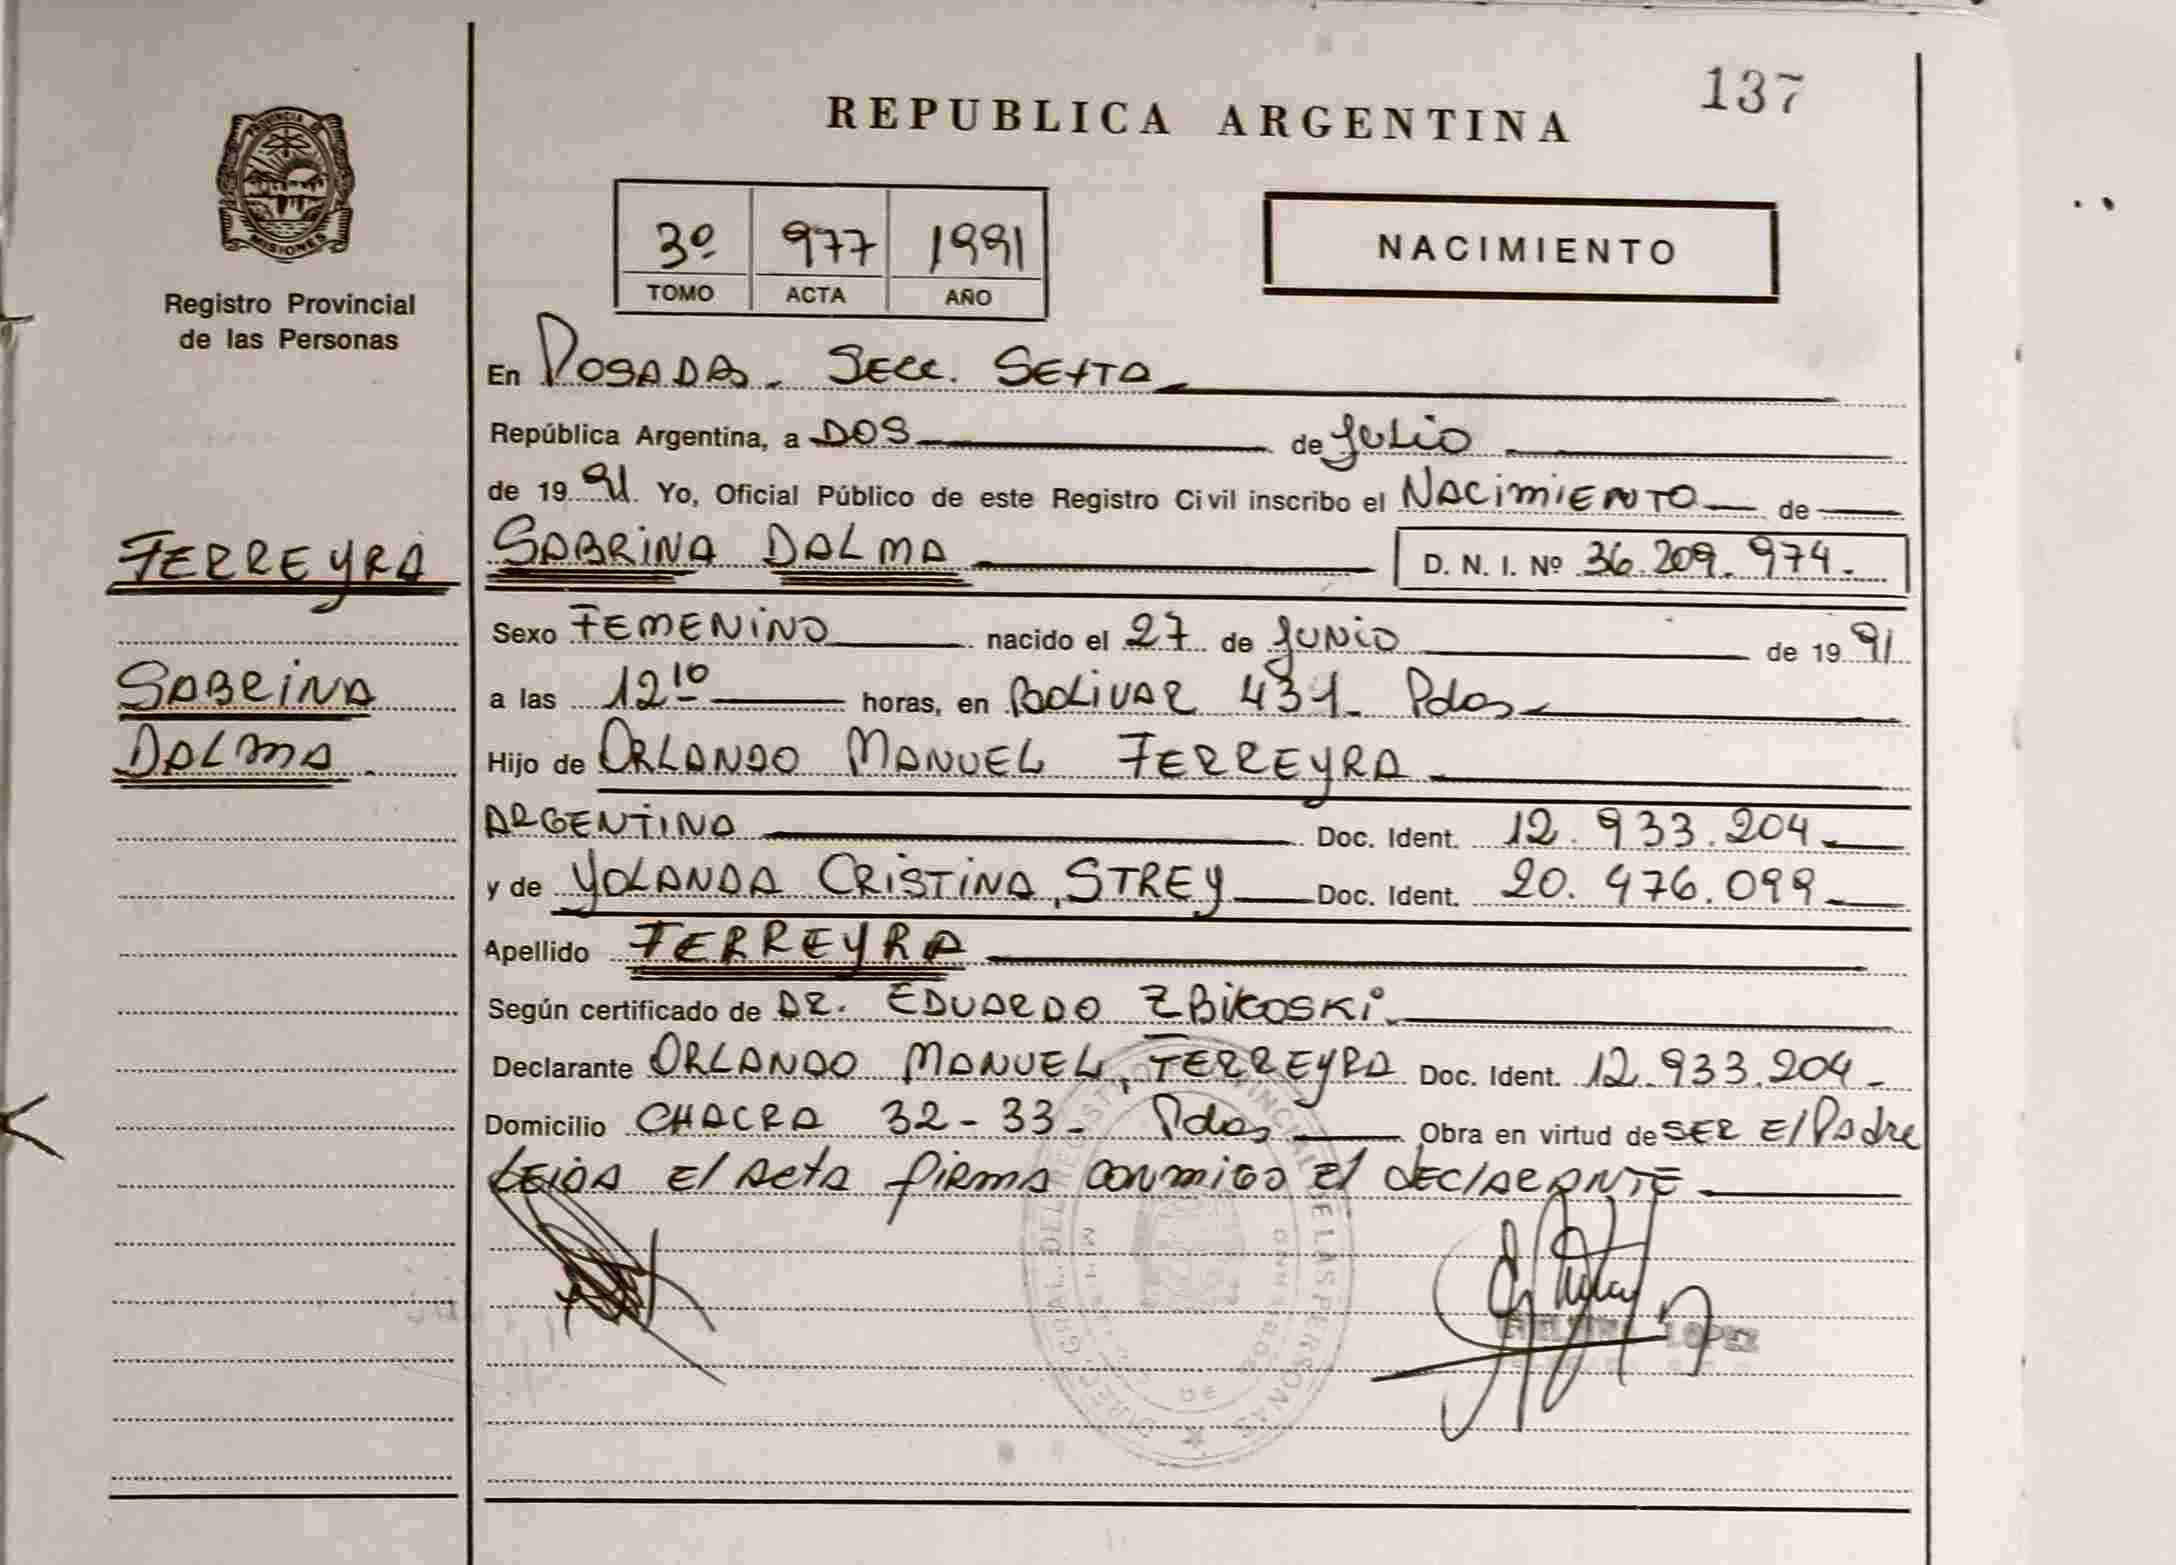 137
REPUBLICA ARGENTINA
PROVINCIA DE
MISIONES
Registro Provincial
de las Personas
3º 977 1991
TOMO ACTA AÑO
NACIMIENTO
En POSADAS. SECC. SEXTA
República Argentina, a DOS de JULIO
de 1991. Yo, Oficial Público de este Registro Civil inscribo el NACIMIENTO de
FERREYRA
SABRINA DALMA D. N. I. Nº 36.209.974.
Sexo FEMENINO nacido el 27 de JUNIO de 1991
SABRINA
DALMA.
a las 12 10 horas, en BOLIVAR 431. Pdas
Hijo de ORLANDO MANUEL FERREYRA
ARGENTINA Doc. Ident. 12.933.204
y de YOLANDA CRISTINA, STREY Doc. Ident. 20.476.099
Apellido FERREYRA
Según certificado de DR. EDUARDO ZBIKOSKI.
Declarante ORLANDO MANUEL, FERREYRA Doc. Ident. 12.933.204.
Domicilio CHACRA 32-33. Pdas, Obra en virtud de SER El Padre
LEIDA El Acta firma conmigo El declarante
LOPEZ
DIREC. GRAL. DEL REGISTRO PROVINCIAL DE LAS PERSONAS